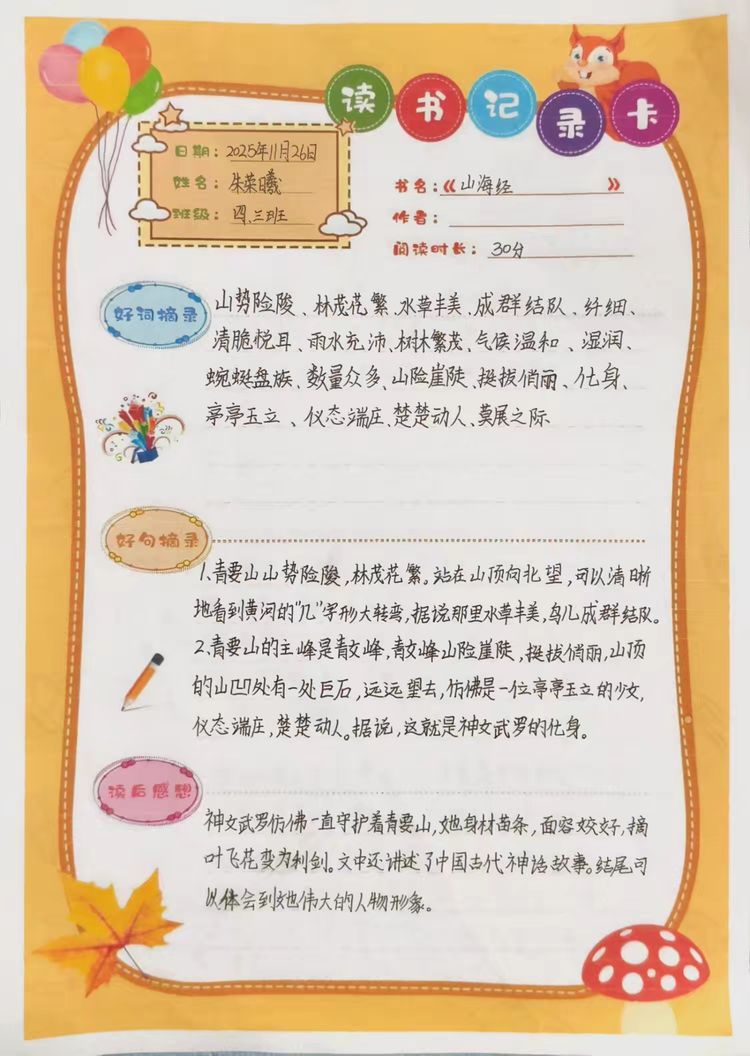 读书记录卡
日期：2025年11月26日
姓名：朱菜曦
班级：四、三班
书名：《山海经》
作者：
阅读时长：30分
好词摘录
山势险陵、林茂花繁、水草丰美、成群结队、纤细、
清脆悦耳、雨水充沛、树木繁茂、气候温和、湿润、
蜿蜒盘族、数量众多、山险崖陡、挺拔俏丽、化身、
亭亭玉立、仪态端庄、楚楚动人、莫展之际
好句摘录
1、青要山山势险陵，林茂花繁。站在山顶向北望，可以清晰
地看到黄河的“几”字形大转弯，据说那里水草丰美，鸟儿成群结队。
2、青要山的主峰是青女峰，青女峰山险崖陡，挺拔俏丽，山顶
的山凹处有一处巨石，远远望去，仿佛是一位亭亭玉立的少女，
仪态端庄，楚楚动人。据说，这就是神女武罗的化身。
读后感想
神女武罗仿佛一直守护着青要山，她身材苗条，面容姣好，摘
叶飞花变为利剑。文中还讲述了中国古代神话故事。结尾可
以体会到她伟大的人物形象。